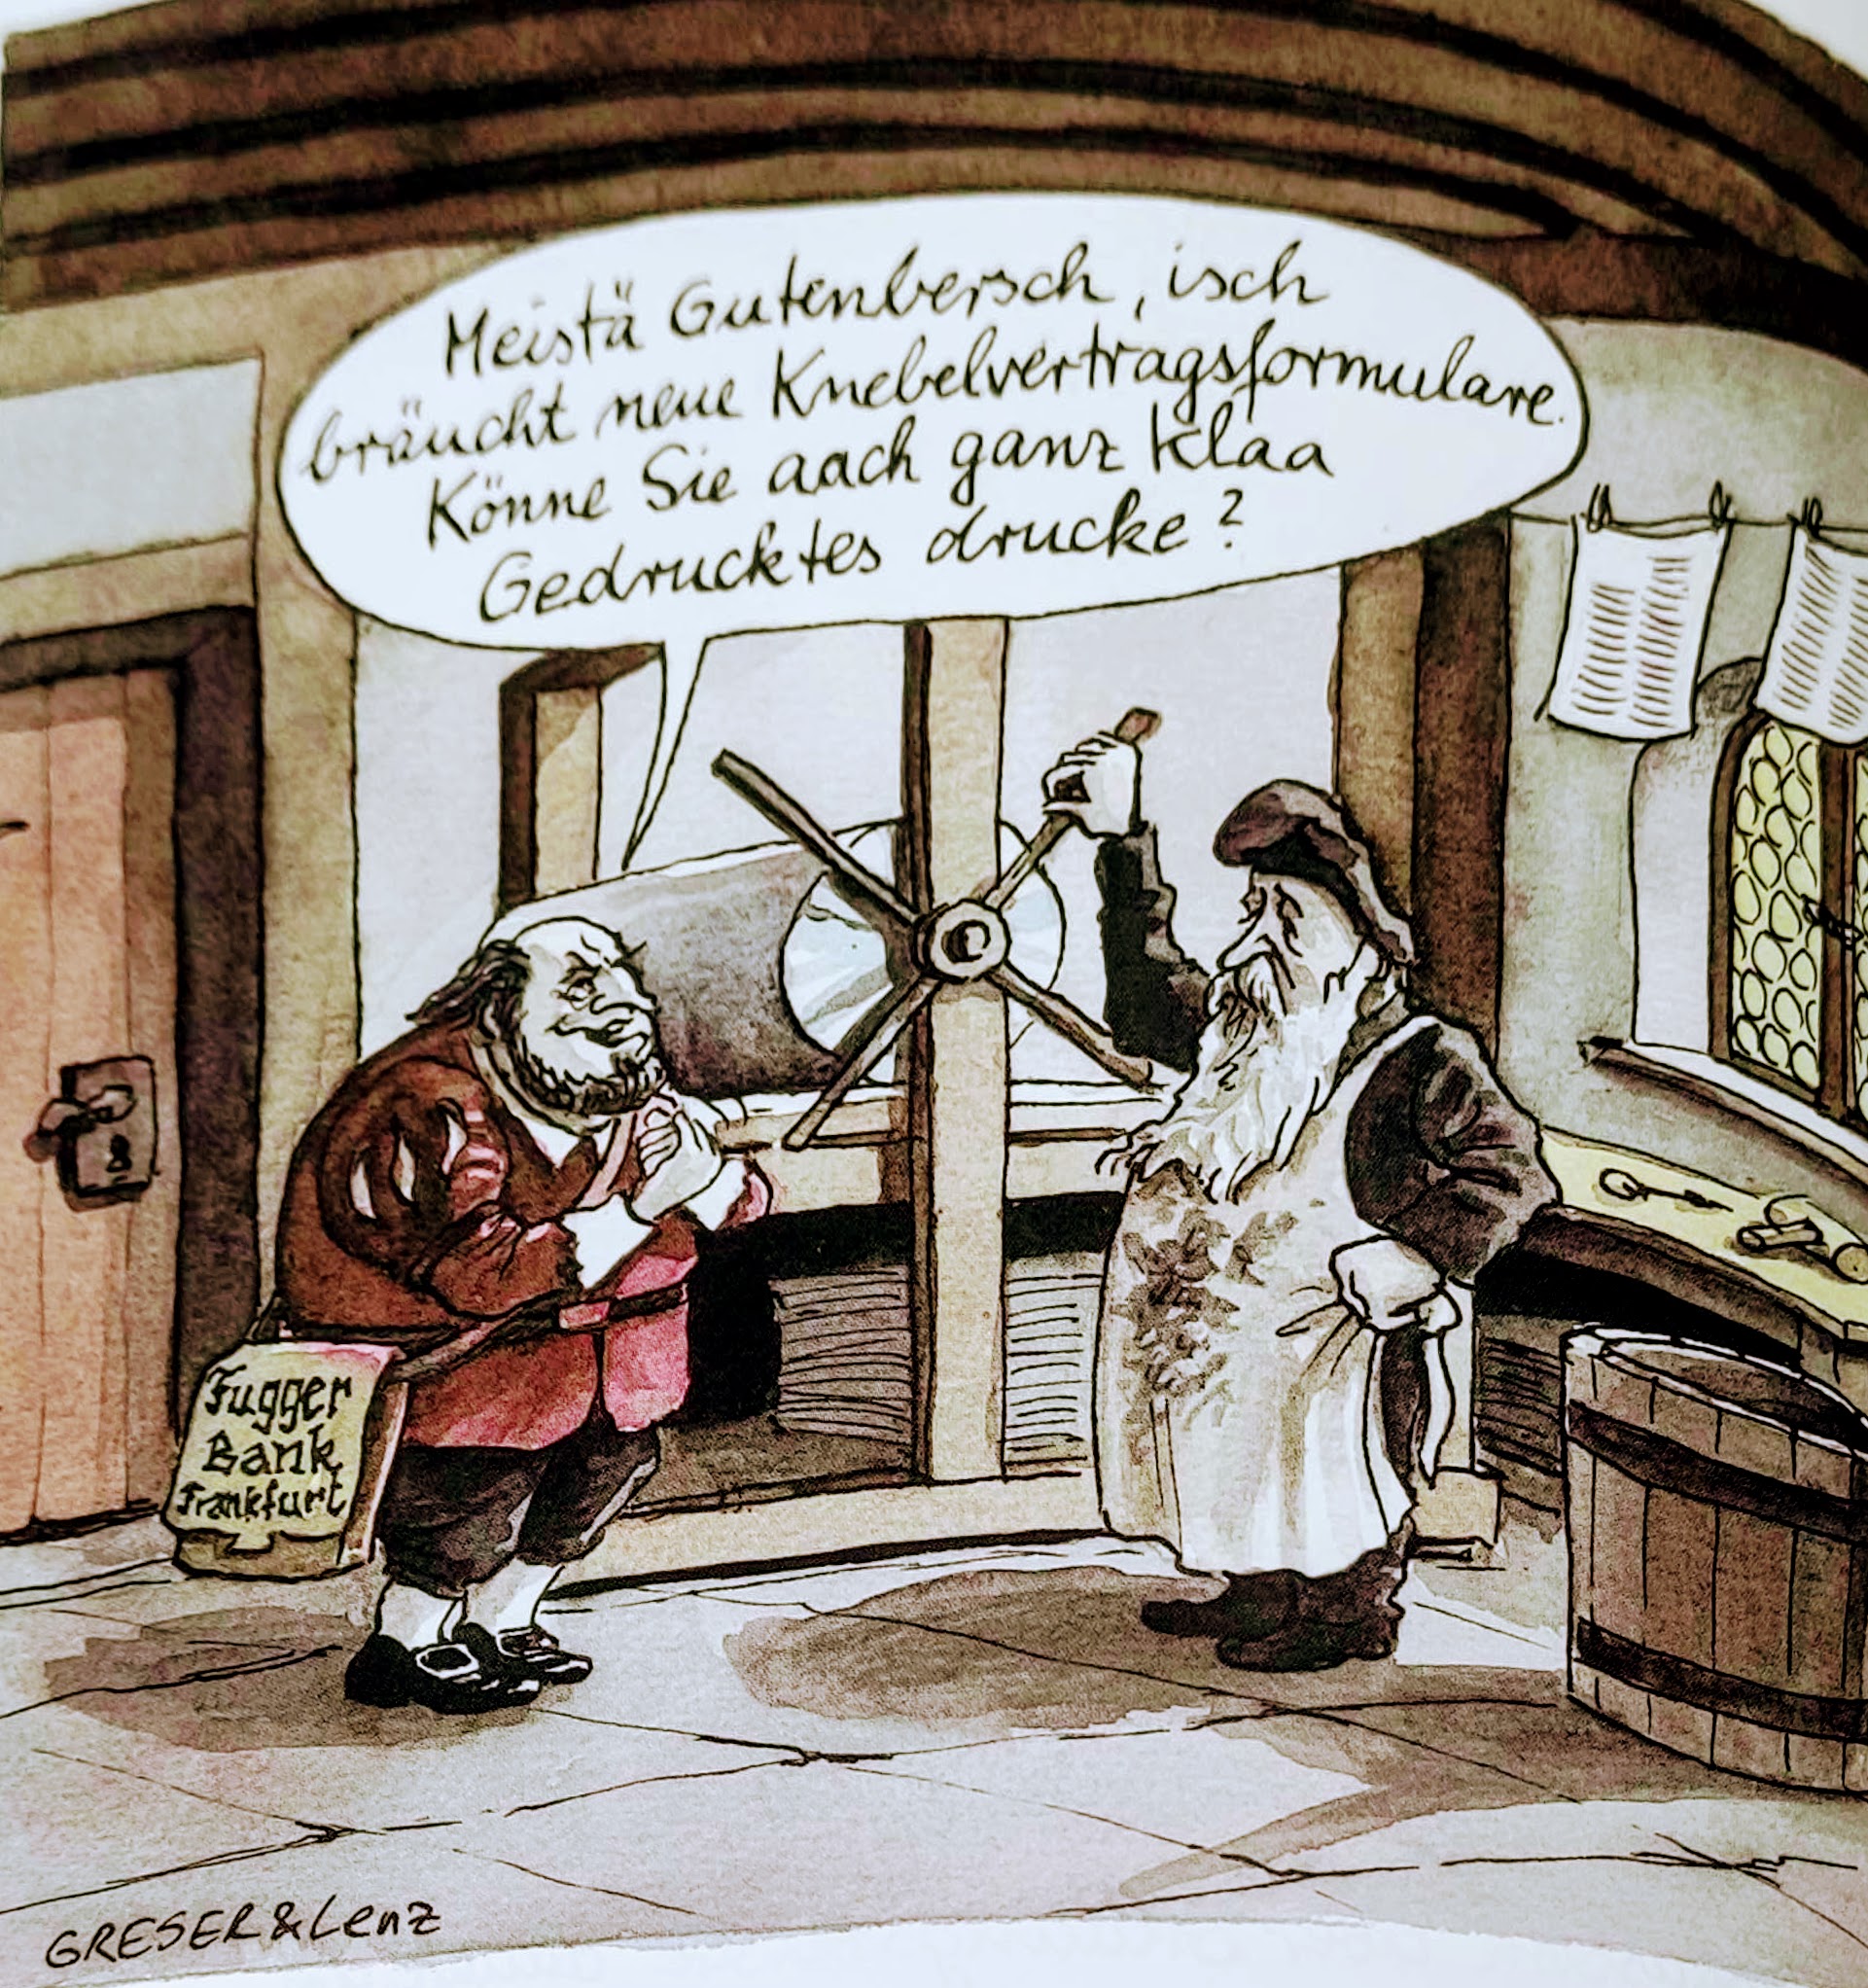 Meistä Gutenbersch, isch
bräucht neue Knebelvertragsformulare.
Könne Sie aach ganz klaa
Gedrucktes drucke?
Fugger
Bank
Frankfurt
GRESER&Lenz